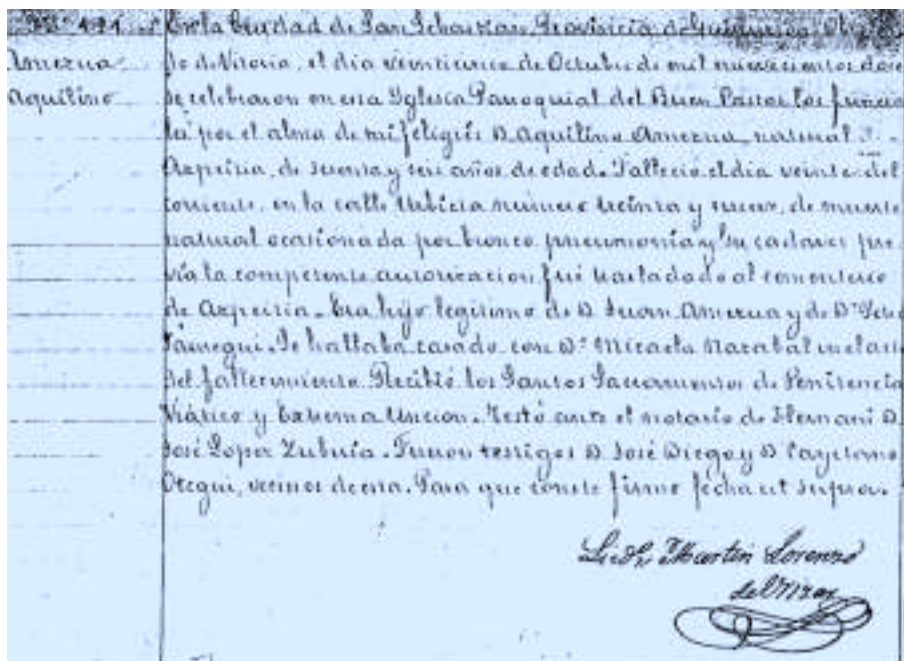 En la Ciudad de San Sebastian, Provincia de Guipuzcoa, Obispa
Amezua do de Vitoria, el dia veinticinco de Octubre de mil novecientos doce
Aquilino se celebraron en esta Yglesia Parroquial del Buen Pastor los funera
les por el alma de mi feligrés D. Aquilino Amezua, natural
Azpeitia, de sesenta y seis años de edad. Falleció el dia veinte del
corriente, en la calle Urbieta número treinta y nueve, de muerte
natural ocasionada por bronco pneumonía y su cadaver pre
vía la competente autorizacion fué trasladado al cementerio
de Azpeitia. Era hijo legitimo de D. Juan Amezua y de Dª
Jauregui. Se hallaba casado con Dª Micaela Nazabal
del fallecimiento. Recibió los Santos Sacramentos de Penitencia
Viático y Extrema Uncion. Testó ante el notario de Hernani D.
José Lopez Zubiría. Fueron testigos D. José Diego y D. Cayetano
Otegui, vecinos de esta. Para que conste firmo fecha ut supra.
Martin Lorenzo